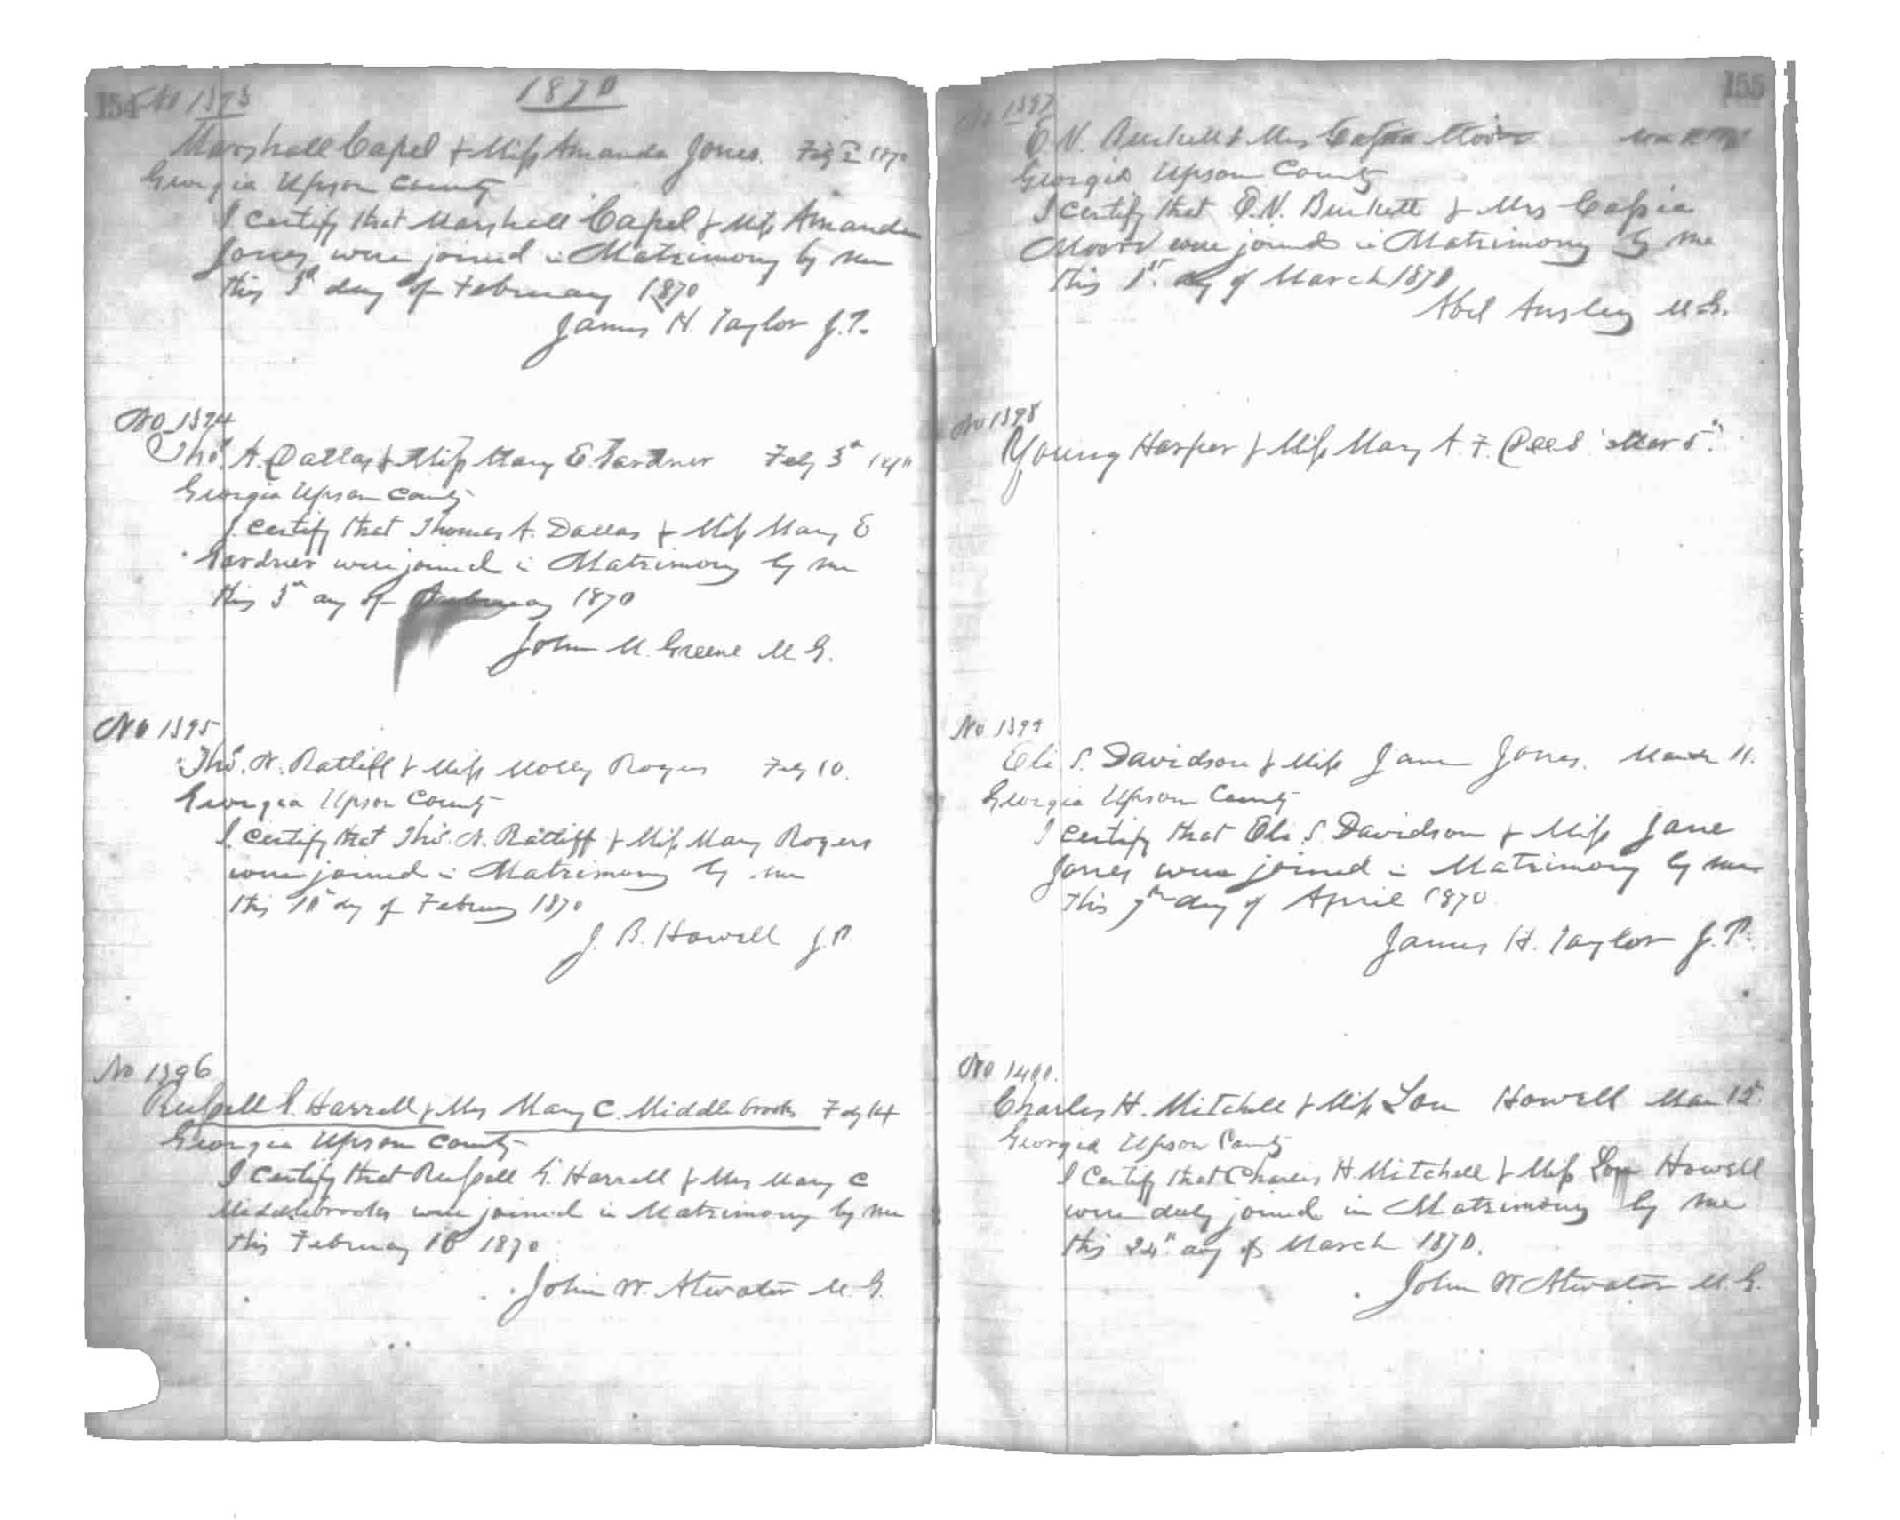 154 No 1393
1870
Marshall Capel & Miss Amanda Jones. Feby 1870
Georgia Upson County
I certify that Marshall Capel & Miss Amanda
Jones were joined in Matrimony by me
this 3d day of February 1870
James H Taylor J.P.
No 1394
Thos. A. Dallas & Miss Mary E. Gardner Feby 3d
Georgia Upson County
I certify that Thomas A. Dallas & Miss Mary E
Gardner were joined in Matrimony by me
this 3d day of February 1870
John M. Greene M G.
No 1395
Thos. N. Ratliff & Miss Molly Rogers Feby 10.
Georgia Upson County
I certify that Thos. N. Ratliff & Miss Mary Rogers
were joined in Matrimony by me
this 10th day of February 1870
J. B. Howell J.P.
No 1396
Russell G. Harrell & Mrs Mary C. Middlebrooks Feby 14
Georgia Upson County
I certify that Russell G. Harrell & Mrs Mary C
Middlebrooks were joined in Matrimony by me
this February 16 1870
John W. Atwater M. G.
155
No 1397
O. N. Burkett & Mrs Moore
Georgia Upson County
I certify that O. N. Burkett & Mrs Capia
Moore were joined in Matrimony by me
this 1st day of March 1870
Abel Ansley M G.
No 1398
Young Harper & Miss Mary A. F. Mar 5th
No 1399
Eli S. Davidson & Miss Jane Jones. March 11.
Georgia Upson County
I certify that Eli S. Davidson & Miss Jane
Jones were joined in Matrimony by me
this 7th day of April 1870
James H. Taylor J.P.
No 1400.
Charles H. Mitchell & Miss Lou Howell Mar 12
Georgia Upson County
I certify that Charles H. Mitchell & Miss Lou Howell
were duly joined in Matrimony by me
this 24th day of March 1870.
John W Atwater M. G.